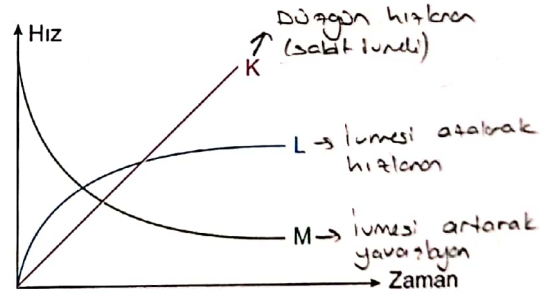 Hız
Düzgün hızlanan
(sabit ivmeli)
K
L → İvmesi azalarak
hızlanan
M → İvmesi artarak
yavaşlayan
Zaman